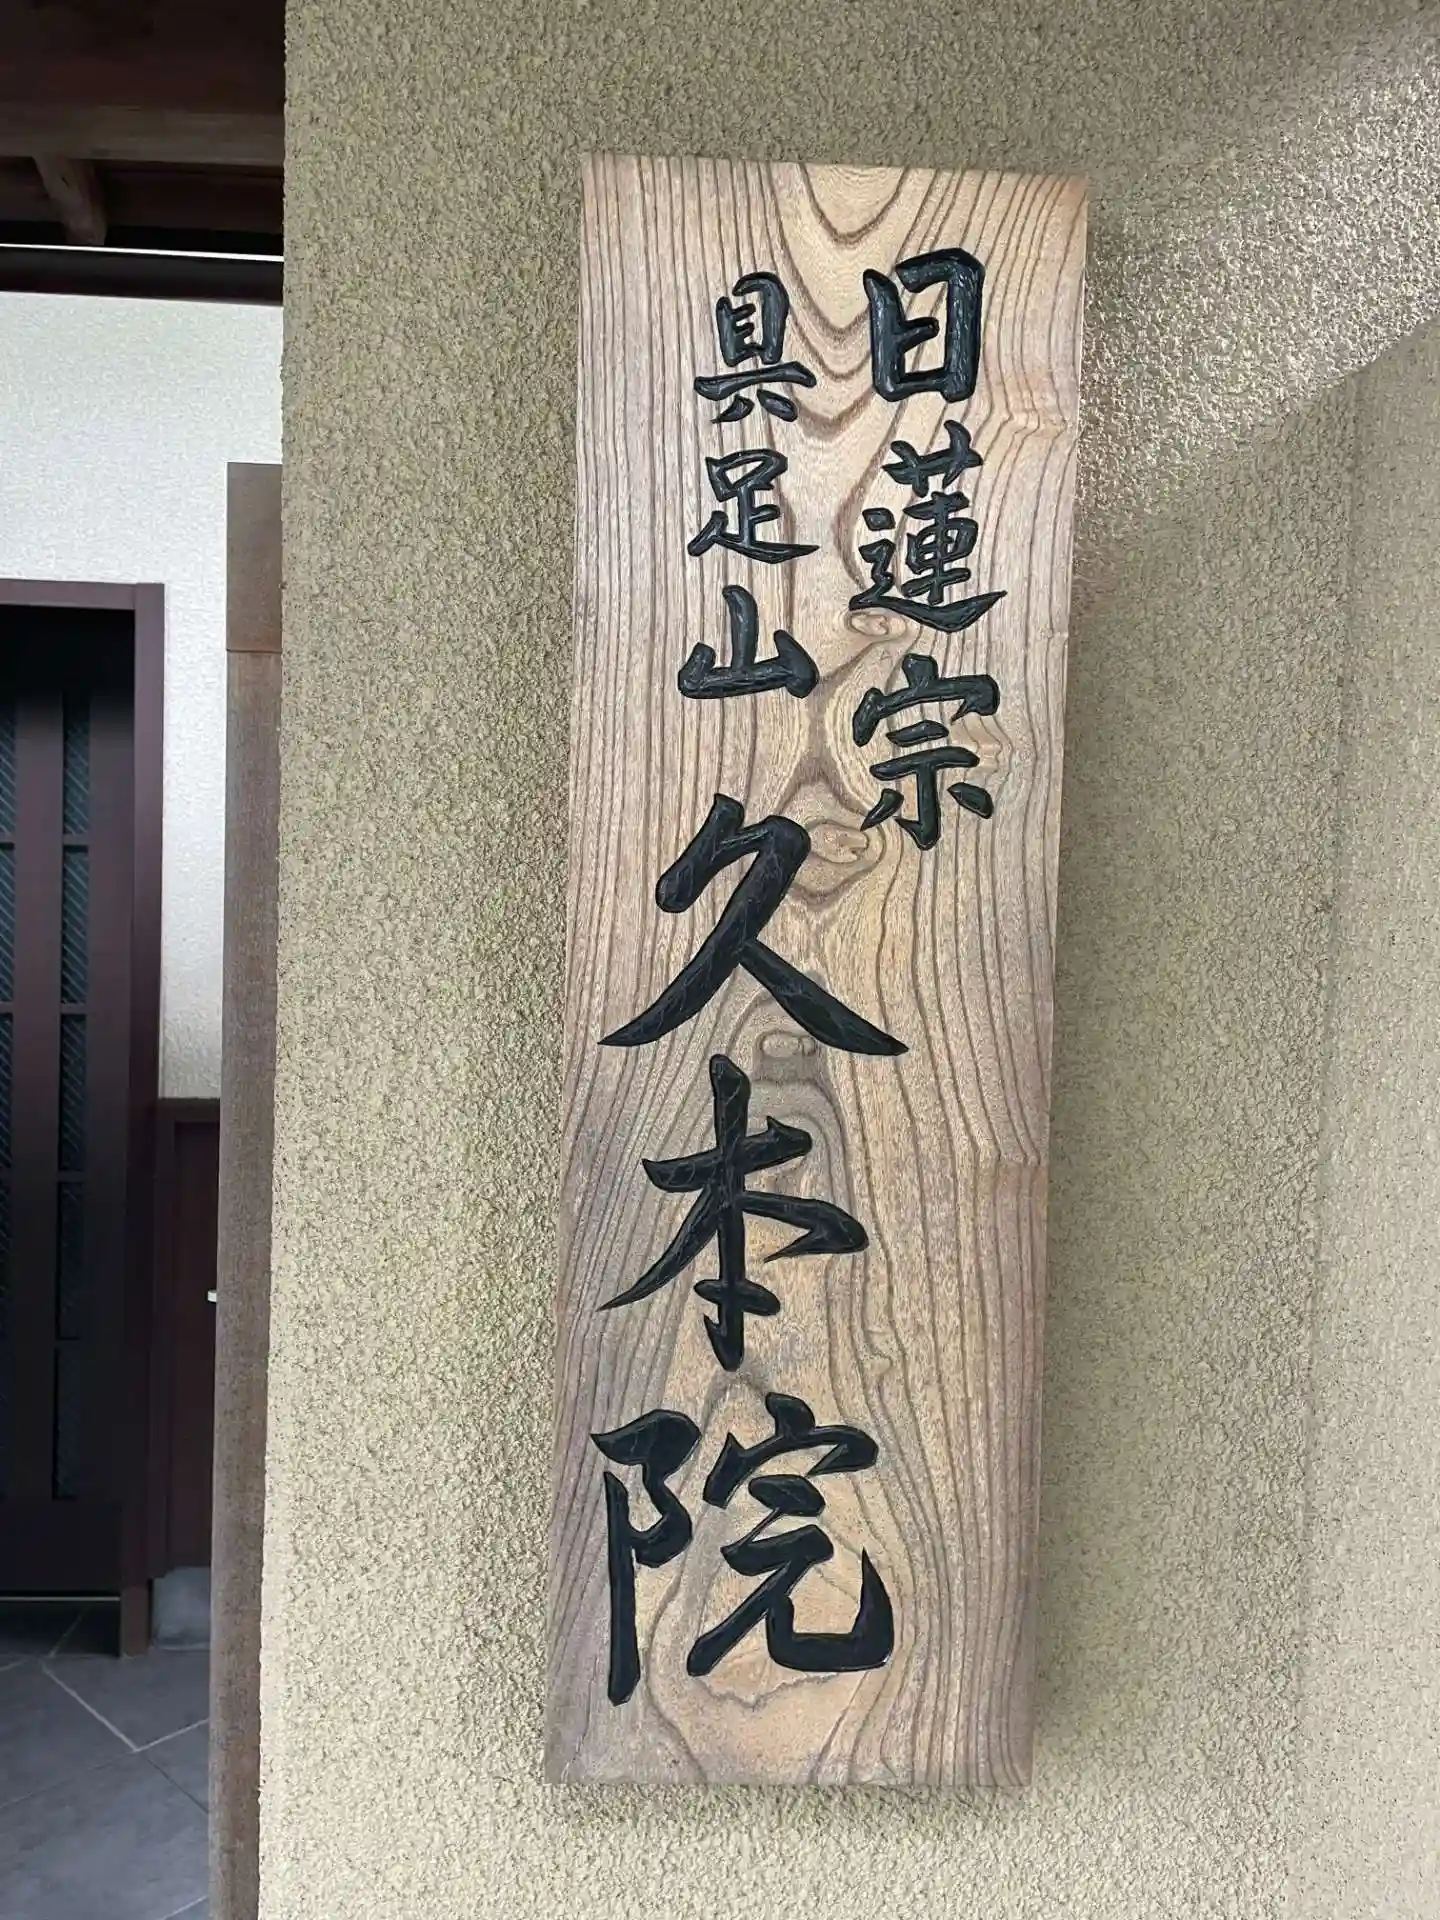 日蓮宗
具足山久本院